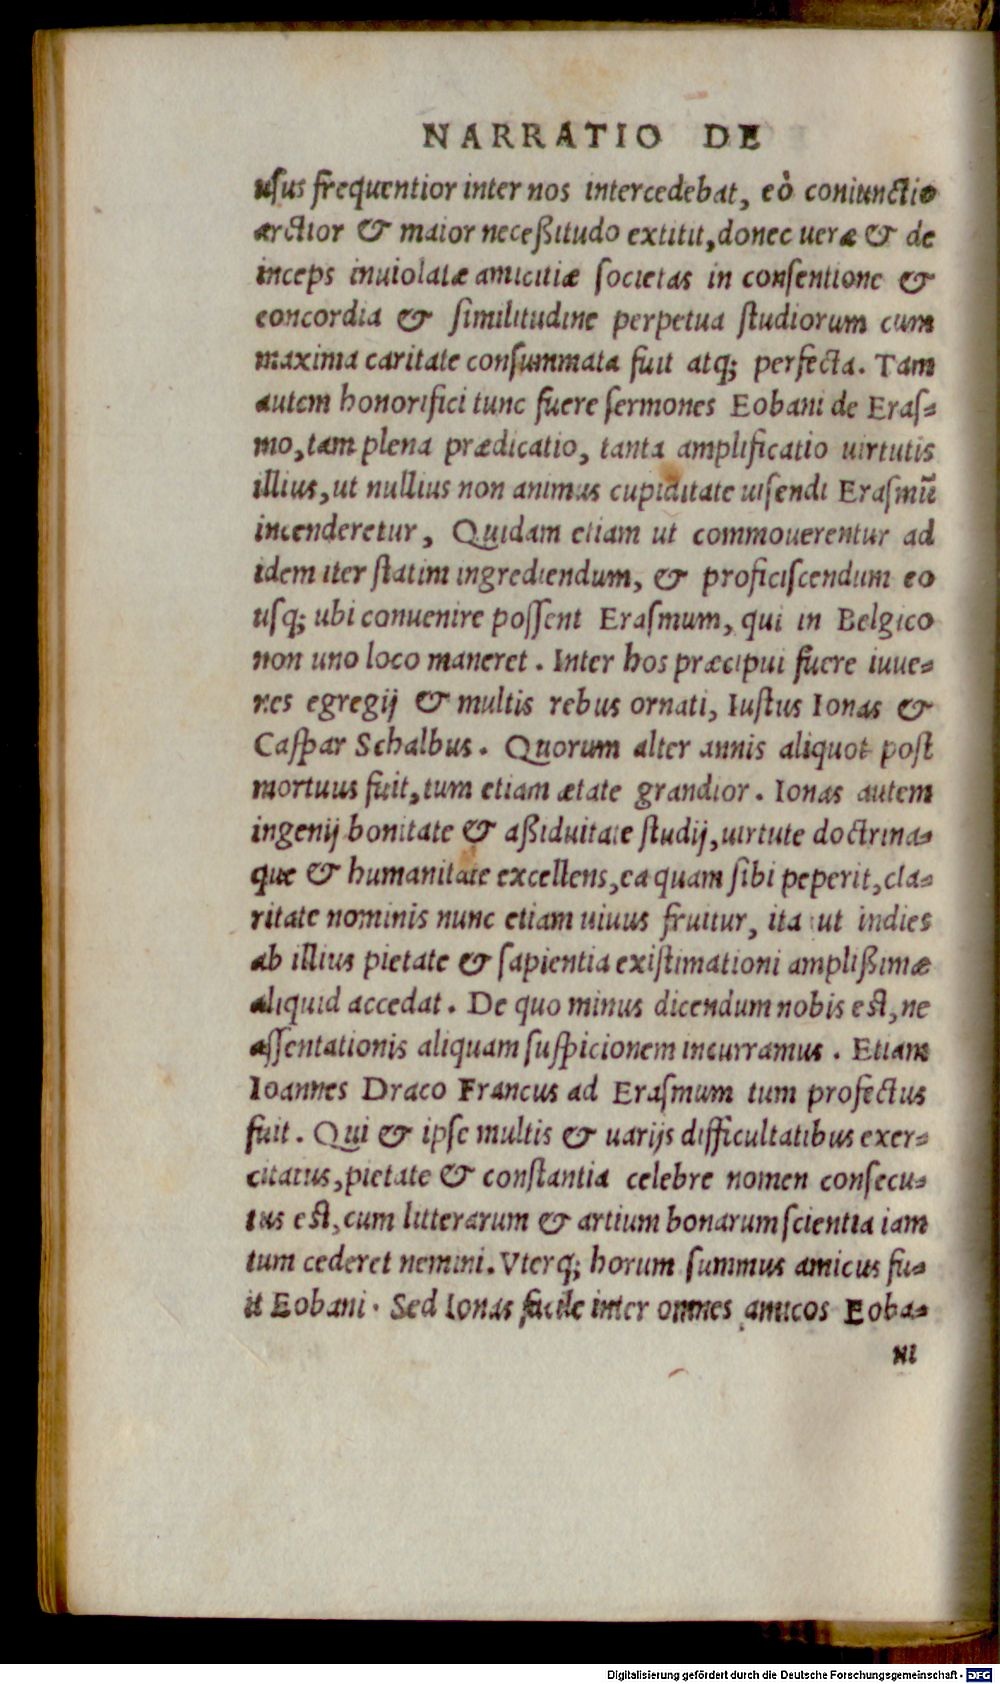 NARRATIO DE
usus frequentior inter nos intercedebat, eò coniunctio
arctior & maior neceßitudo extitit, donec ueræ & de
inceps inuiolatæ amicitiæ societas in consentione &
concordia & similitudine perpetua studiorum cum
maxima caritate consummata fuit atq; perfecta. Tam
autem honorifici tunc fuere sermones Eobani de Eras-
mo, tam plena prædicatio, tanta amplificatio uirtutis
illius, ut nullius non animus cupiditate uisendi Erasmũ
incenderetur, Quidam etiam ut commouerentur ad
idem iter statim ingrediendum, & proficiscendum eo
usq; ubi conuenire possent Erasmum, qui in Belgico
non uno loco maneret. Inter hos præcipui fuere iuue-
nes egregij & multis rebus ornati, Iustus Ionas &
Caspar Schalbus. Quorum alter annis aliquot post
mortuus fuit, tum etiam ætate grandior. Ionas autem
ingenij bonitate & aßiduitate studij, uirtute doctrina-
que & humanitate excellens, ea quam sibi peperit, cla-
ritate nominis nunc etiam uiuus fruitur, ita ut indies
ab illius pietate & sapientia existimationi amplißimæ
aliquid accedat. De quo minus dicendum nobis est, ne
assentationis aliquam suspicionem incurramus. Etiam
Ioannes Draco Francus ad Erasmum tum profectus
fuit. Qui & ipse multis & uarijs difficultatibus exer-
citatus, pietate & constantia celebre nomen consecu-
tus est, cum litterarum & artium bonarum scientia iam
tum cederet nemini. Vterq; horum summus amicus fu-
it Eobani. Sed Ionas facile inter omnes amicos Eoba-
ni
Digitalisierung gefördert durch die Deutsche Forschungsgemeinschaft - DFG